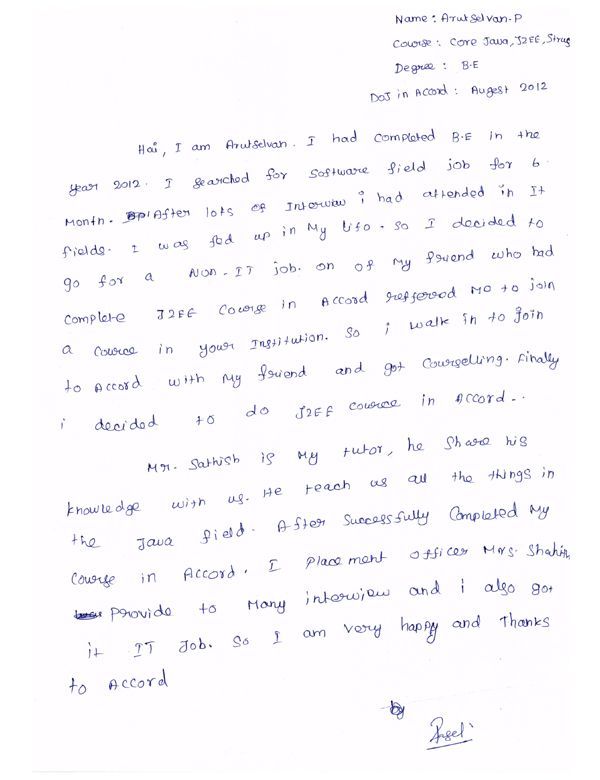 Name : Arutselvan.P
Course : Core Java, J2EE, Strus
Degree : B.E
DOJ in Accord : Augest 2012
Hai, I am Arutselvan. I had completed B.E in the
year 2012. I searched for Software field job for 6
Month. After lots of Interview i had attended in It
fields. I was fed up in My life. So I decided to
go for a Non-IT job. on of My friend who had
complete J2EE Course in Accord reffered Me to join
a Course in your Institution. So i walk in to Join
to Accord with My friend and got Courselling. Finally
i decided to do J2EE Course in Accord..
Mr. Sathish is My tutor, he Share his
knowledge with us. He teach us all the things in
the Java field. After Successfully Completed My
Course in Accord. I Placement officer Mrs. Shahin
Provide to Many interview and i also got
it IT Job. So I am very happy and Thanks
to Accord
by